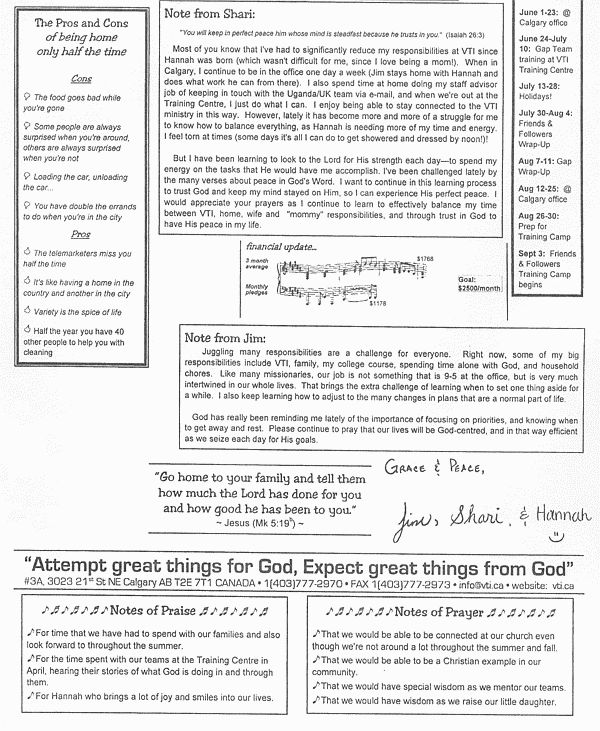 The Pros and Cons
of being home
only half the time
Cons
The food goes bad while
you're gone
Some people are always
surprised when you're around,
others are always surprised
when you're not
Loading the car, unloading
the car...
You have double the errands
to do when you're in the city
Pros
The telemarketers miss you
half the time
It's like having a home in the
country and another in the city
Variety is the spice of life
Half the year you have 40
other people to help you with
cleaning
Note from Shari:
"You will keep in perfect peace him whose mind is steadfast because he trusts in you." (Isaiah 26:3)
Most of you know that I've had to significantly reduce my responsibilities at VTI since
Hannah was born (which wasn't difficult for me, since I love being a mom!). When in
Calgary, I continue to be in the office one day a week (Jim stays home with Hannah and
does what work he can from there). I also spend time at home doing my staff advisor
job of keeping in touch with the Uganda/UK team via e-mail, and when we're out at the
Training Centre, I just do what I can. I enjoy being able to stay connected to the VTI
ministry in this way. However, lately it has become more and more of a struggle for me
to know how to balance everything, as Hannah is needing more of my time and energy.
I feel torn at times (some days it's all I can do to get showered and dressed by noon)!
But I have been learning to look to the Lord for His strength each day—to spend my
energy on the tasks that He would have me accomplish. I've been challenged lately by
the many verses about peace in God's Word. I want to continue in this learning process
to trust God and keep my mind stayed on Him, so I can experience His perfect peace. I
would appreciate your prayers as I continue to learn to effectively balance my time
between VTI, home, wife and "mommy" responsibilities, and through trust in God to
have His peace in my life.
June 1-23: @
Calgary office
June 24-July
10: Gap Team
training at VTI
Training Centre
July 13-28:
Holidays!
July 30-Aug 4:
Friends &
Followers
Wrap-Up
Aug 7-11: Gap
Wrap-Up
Aug 12-25: @
Calgary office
Aug 26-30:
Prep for
Training Camp
Sept 3: Friends
& Followers
Training Camp
begins
financial update...
3 month
average
$1768
Monthly
pledges
$1178
Goal:
$2500/month
Note from Jim:
Juggling many responsibilities are a challenge for everyone. Right now, some of my big
responsibilities include VTI, family, my college course, spending time alone with God, and household
chores. Like many missionaries, our job is not something that is 9-5 at the office, but is very much
intertwined in our whole lives. That brings the extra challenge of learning when to set one thing aside for
a while. I also keep learning how to adjust to the many changes in plans that are a normal part of life.
God has really been reminding me lately of the importance of focusing on priorities, and knowing when
to get away and rest. Please continue to pray that our lives will be God-centred, and in that way efficient
as we seize each day for His goals.
"Go home to your family and tell them
how much the Lord has done for you
and how good he has been to you."
~ Jesus (Mk 5:19b) ~
Grace & Peace,
Jim, Shari, & Hannah
"Attempt great things for God, Expect great things from God"
#3A, 3023 21st St NE Calgary AB T2E 7T1 CANADA • 1(403)777-2970 • FAX 1(403)777-2973 • info@vti.ca • website: vti.ca
Notes of Praise
For time that we have had to spend with our families and also
look forward to throughout the summer.
For the time spent with our teams at the Training Centre in
April, hearing their stories of what God is doing in and through
them.
For Hannah who brings a lot of joy and smiles into our lives.
Notes of Prayer
That we would be able to be connected at our church even
though we're not around a lot throughout the summer and fall.
That we would be able to be a Christian example in our
community.
That we would have special wisdom as we mentor our teams.
That we would have wisdom as we raise our little daughter.